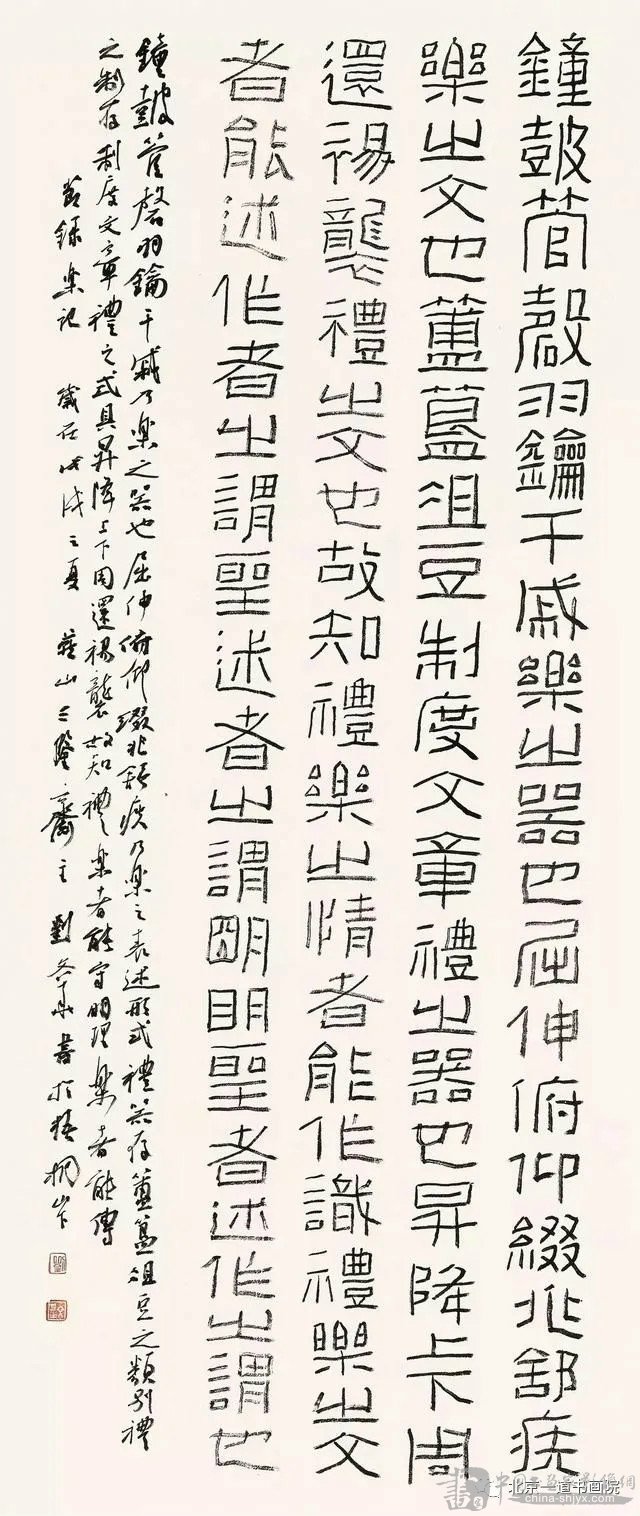 鐘鼓管磬羽鑰干戚樂之器也屈伸俯仰綴兆舒疾
樂之文也簠簋俎豆制度文章禮之器也昇降上下周
還裼襲禮之文也故知禮樂之情者能作識禮樂之文
者能述作者之謂聖述者之謂明明聖者述作之謂也
鐘鼓管磬羽鑰干戚乃樂之器也屈伸俯仰綴兆舒疾乃樂之表述形式禮器存簠簋俎豆之類別禮
之制存制度文章禮之式具昇降上下周還裼襲故知禮樂者能守明理樂者能傳
節錄樂記 歲在戊戌之夏 山三 齋主劉 書於梧桐
北京一道书画院
china-shjyx.com